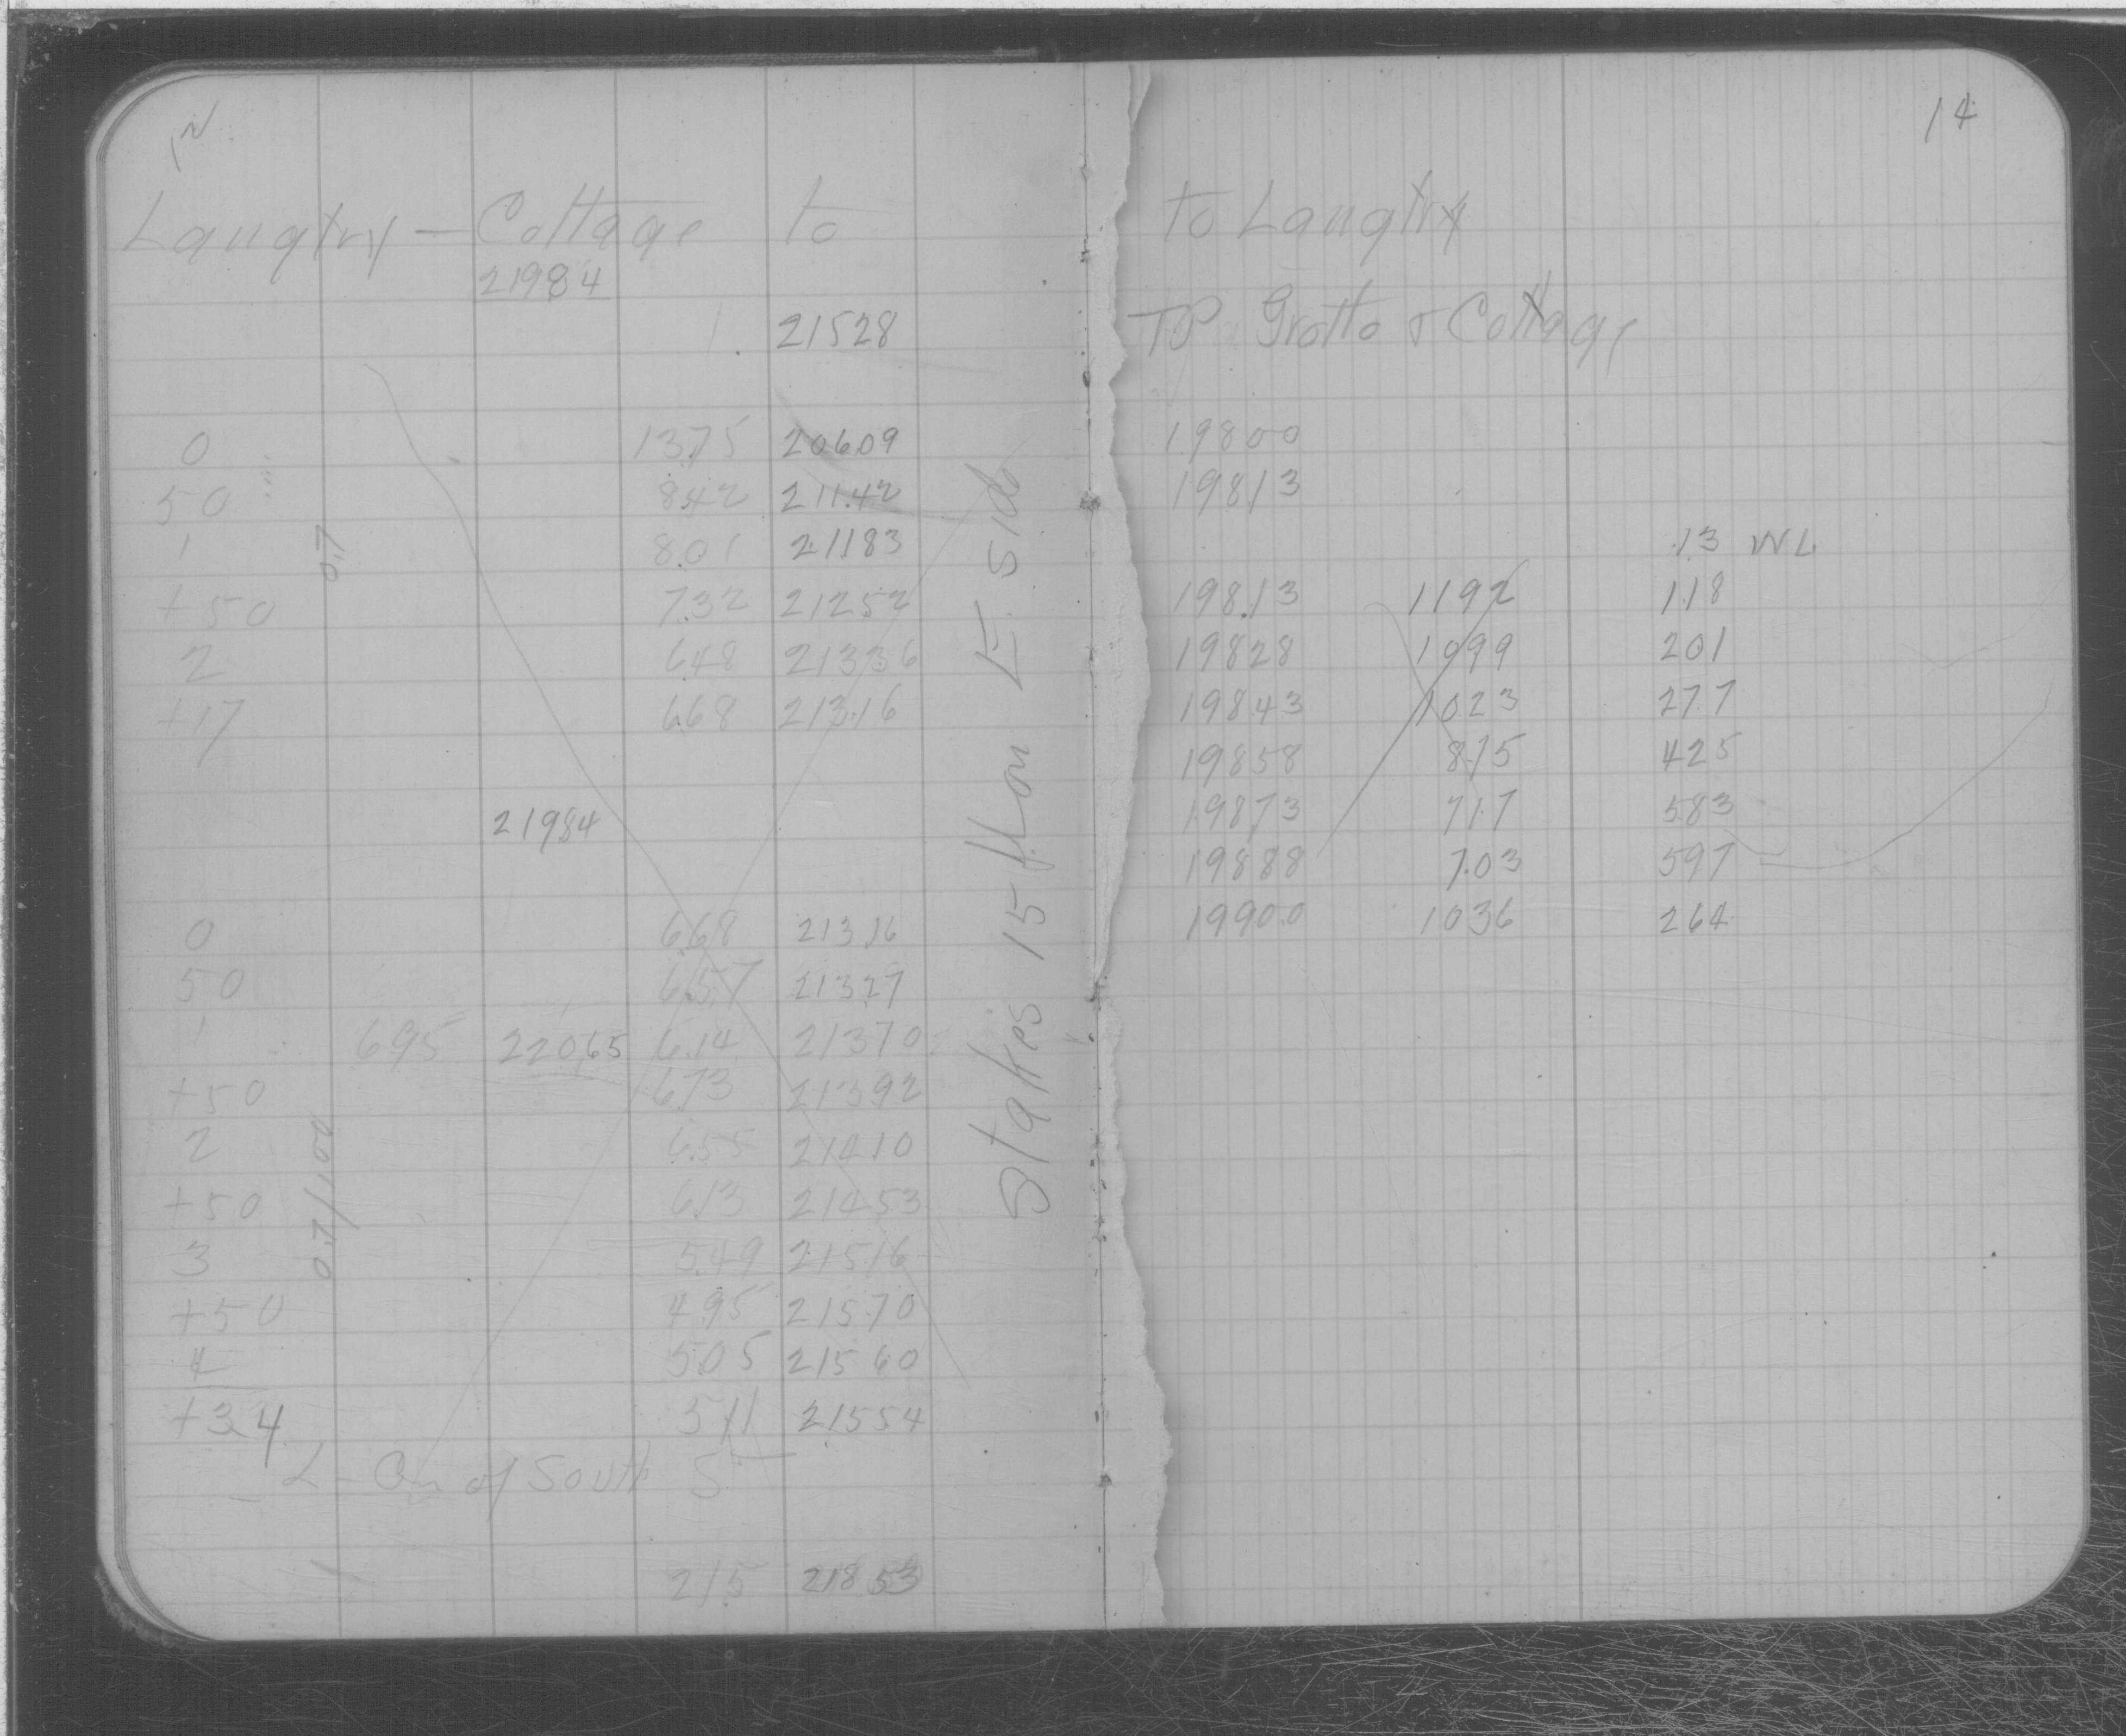 N
Langtry - Cottage to
21984
21528
0 1375 20609
50 842 21142
1 8.01 21183
+50 7.32 21252
2 648 21336
+17 668 21316
0.7
21984
0 668 21316
50 657 21327
1 695 22065 6.14 21370
+50 673 21392
2 6.55 21410
+50 613 21453
3 549 21516
+50 495 21570
4 505 21560
+34 511 21554
0.7/100
of South St
215 21853
Stakes 15 ft on E. side
14
to Langtry
TP Grotto & Cottage
19800
19813
.13 WL
19813 1192 118
19828 1099 201
19843 1023 277
19858 875 425
19873 717 583
19888 7.03 597
19900 1036 264